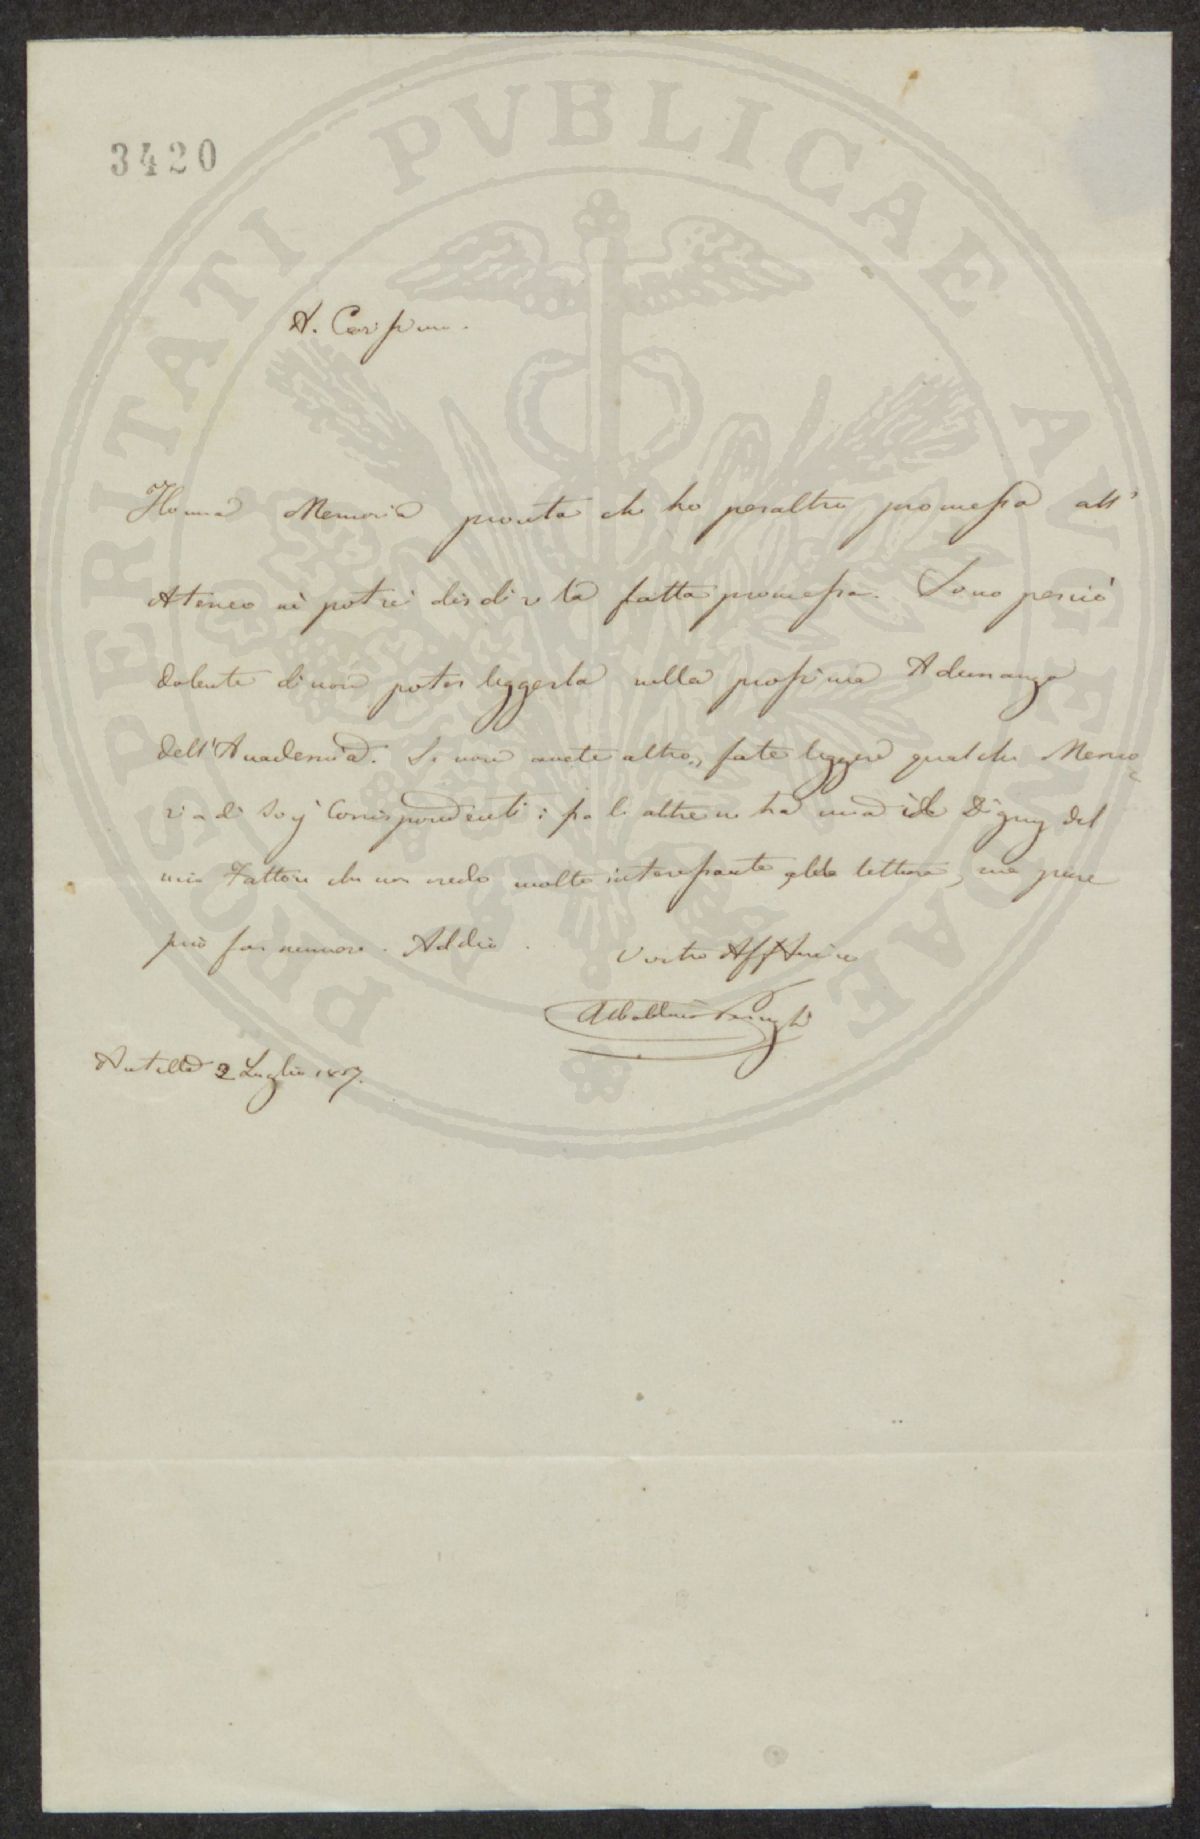 PROSPERITATI PVBLICAE AVGENDAE
3420
A. Carissimo.
Ho una Memoria pronta che ho peraltro promessa all'
Ateneo nè potrei disdir la fatta promessa. Sono perciò
dolente di non poter leggerla nella prossima Adunanza
dell'Accademia. Se non avete altro, fate leggere qualche Memo-
ria di Socj Corrispondenti: fra le altre ve ha una del
mio Fattore che non credo molto interessante alla lettura, ma pure
può far numero. Addio. Vostro Aff Amico
Ubaldino Peruzzi
Antella 2 Luglio 1857.